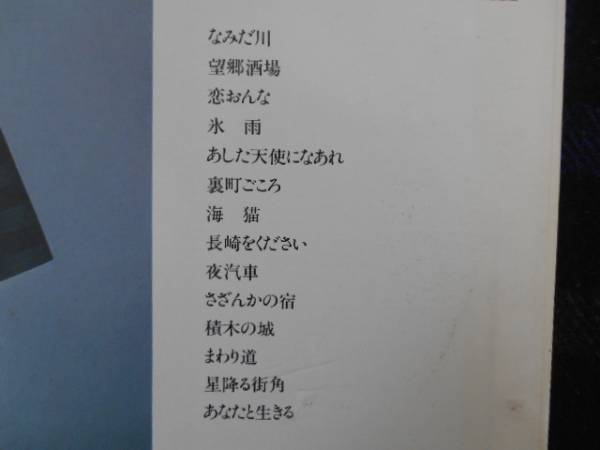 なみだ川
望郷酒場
恋おんな
氷　雨
あした天使になあれ
裏町ごころ
海　猫
長崎をください
夜汽車
さざんかの宿
積木の城
まわり道
星降る街角
あなたと生きる